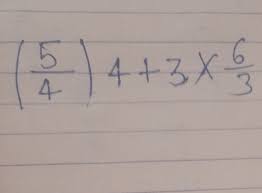 (5/4) 4 + 3 × 6/3